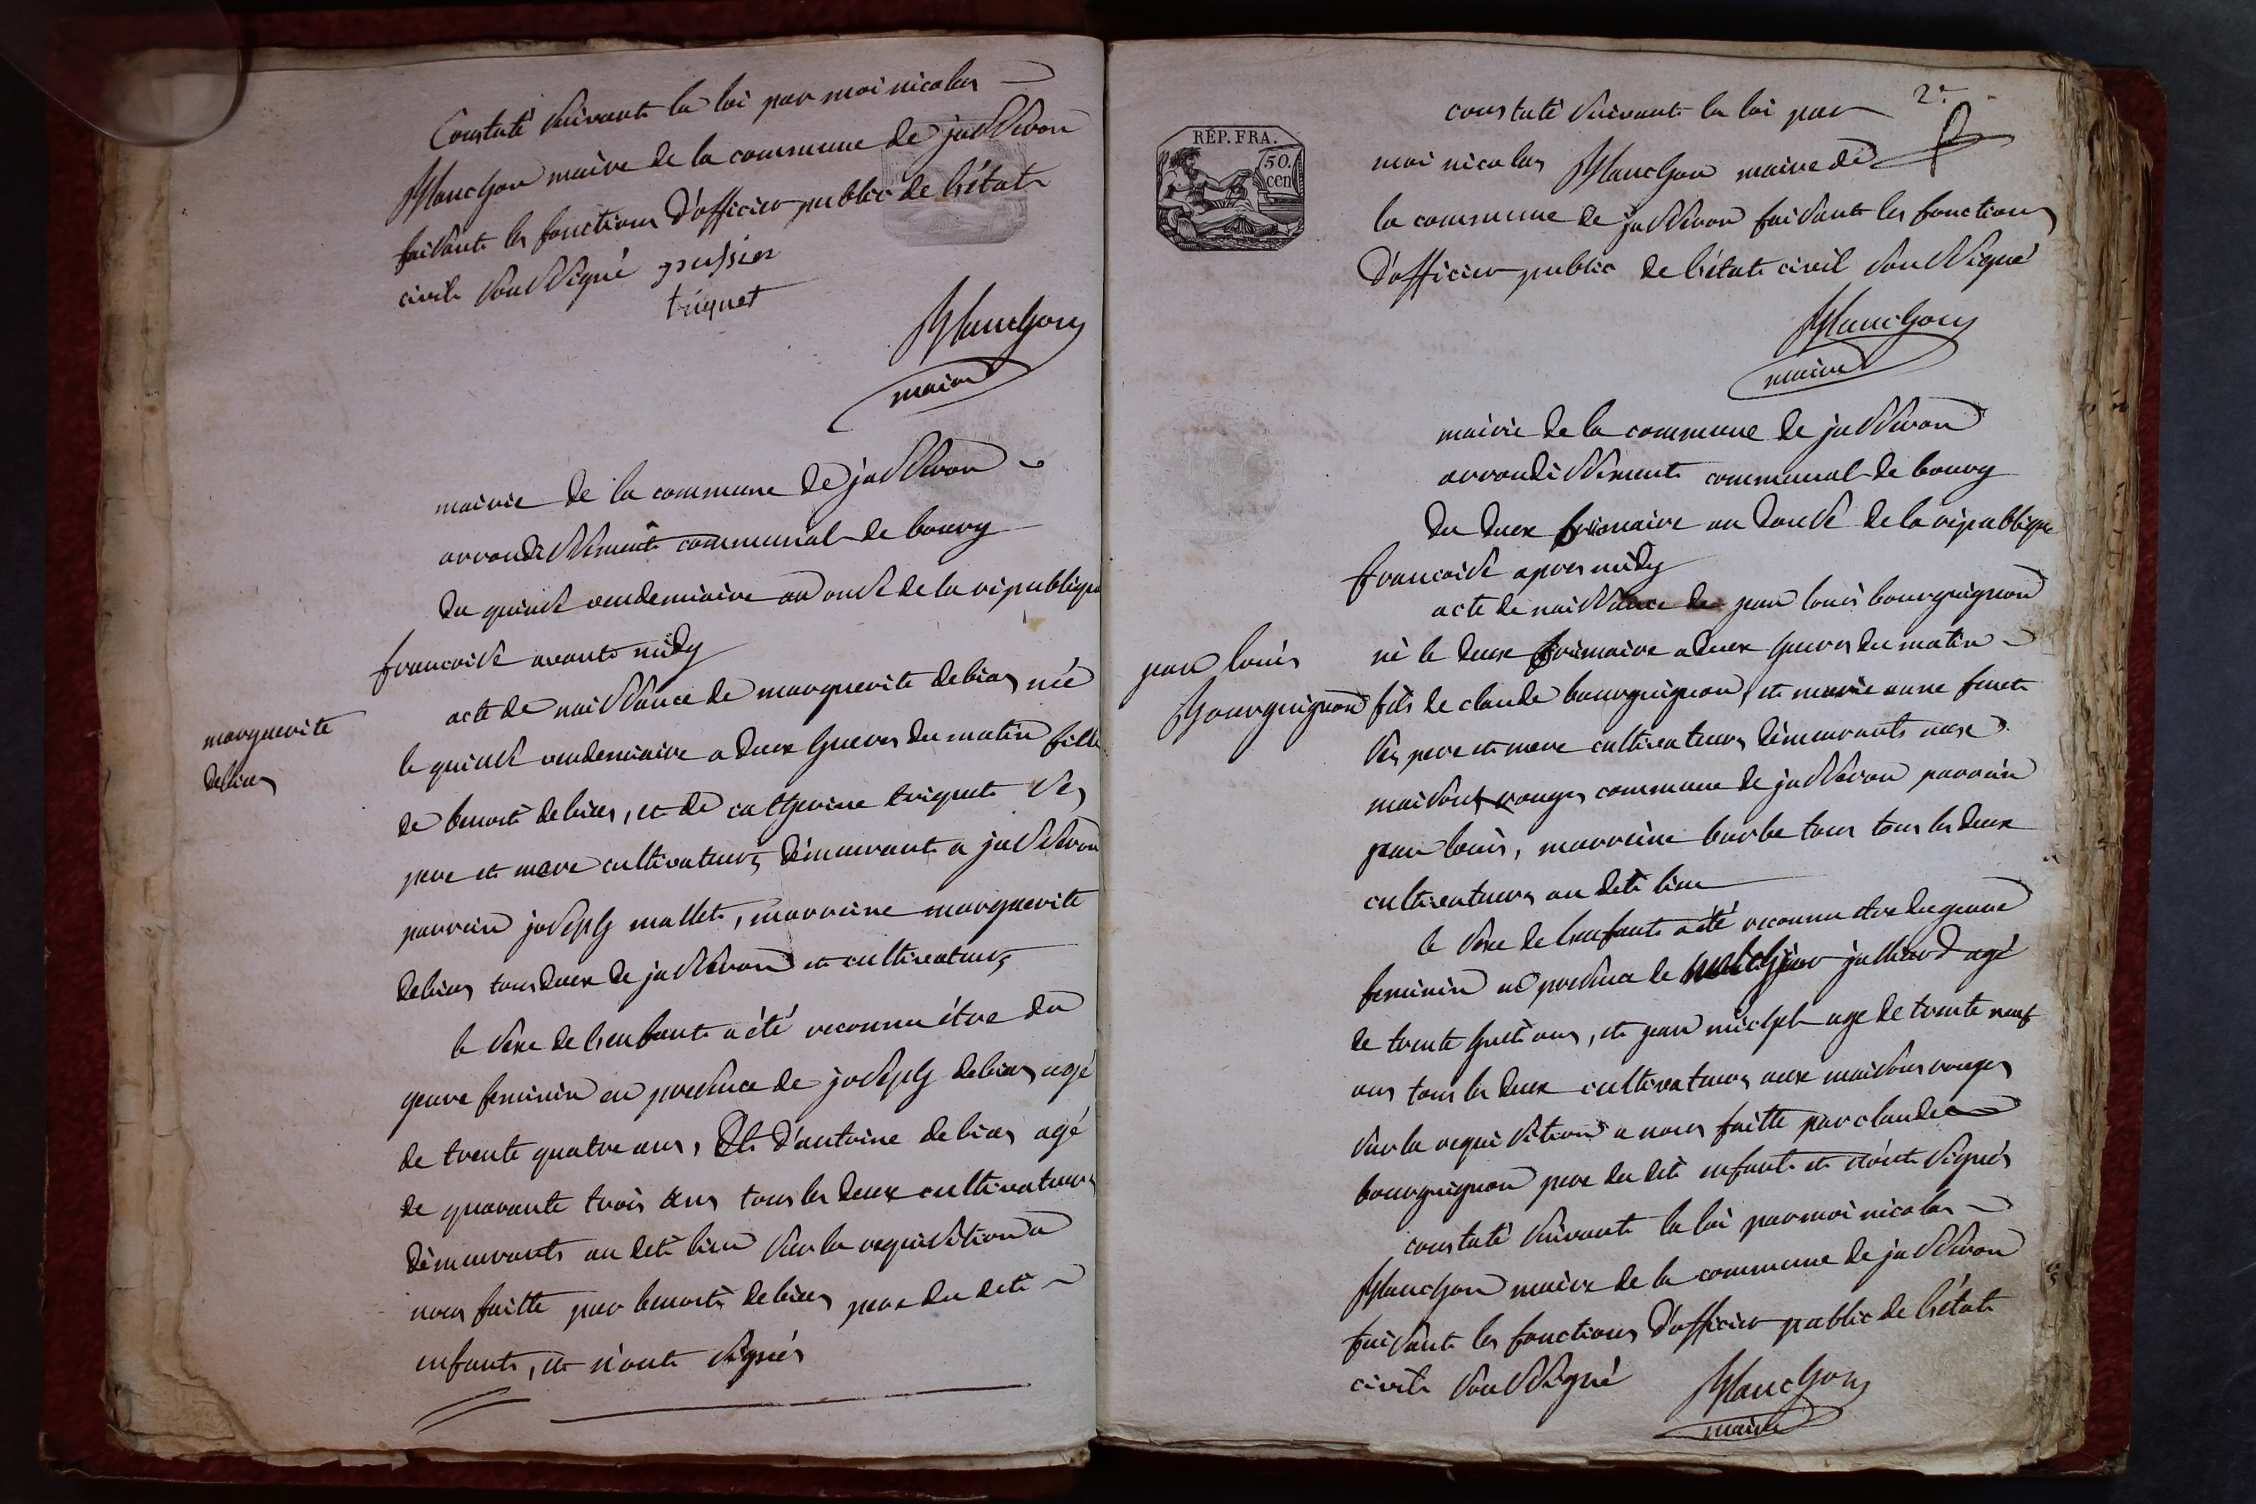 Constaté suivant la loi par moi nicolas
Manchon maire de la commune de jasseron
faisant les fonctions d'officier public de l'état
civil soussigné grussier
triquet
Manchon
maire
mairie de la commune de jasseron
arrondissement communal de bourg
du quinze vendemiaire an onze de la république
francoise avant midy
acte de naissance de marguerite debias née
marguerite
debias
le quinze vendemiaire a deux heures du matin fille
de benoit debias, et de catherine triquet ses
pere et mere cultivateurs demeurant a jasseron
parrein joseph mallet, marreine marguerite
debias tous deux de jasseron et cultivateurs
le sexe de l'enfant a été reconnu être du
genre feminin en presence de joseph debias agé
de trente quatre ans, Et d'antoine debias agé
de quarante trois ans tous les deux cultivateurs
demeurants au dit lieu sur la requisition a
nous faitte par benoit debias pere du dit
enfant, et n'ont signés
2e
RÉP. FRA.
50.
cen
constaté suivant la loi par
moi nicolas Manchon maire de
la commune de jasseron faisant les fonctions
d'officier public de l'état civil soussigné
Manchon
maire
mairie de la commune de jasseron
arrondissement communal de bourg
du deux frimaire an douse de la république
francoise apres midy
acte de naissance de jean louis bourguignon
jean louis
Bourguignon
né le deux frimaire a deux heures du matin
fils de claude bourguignon, et marie anne
ses pere et mere cultivateurs demeurants aux
maisons rouges commune de jasseron parrein
jean louis, marreine barbe tous les deux
cultivateurs au dit lieu
le sexe de l'enfant a été reconnu etre du genre
feminin en presence de melchior julliard agé
de trente huit ans, et jean michel age de trente neuf
ans tous les deux cultivateurs aux maisons rouges
sur la requisition a nous faitte par claude
bourguignon pere du dit enfant et n'ont signés
constaté suivant la loi par moi nicolas
Manchon maire de la commune de jasseron
faisant les fonctions d'officier public de l'état
civil soussigné
Manchon
maire